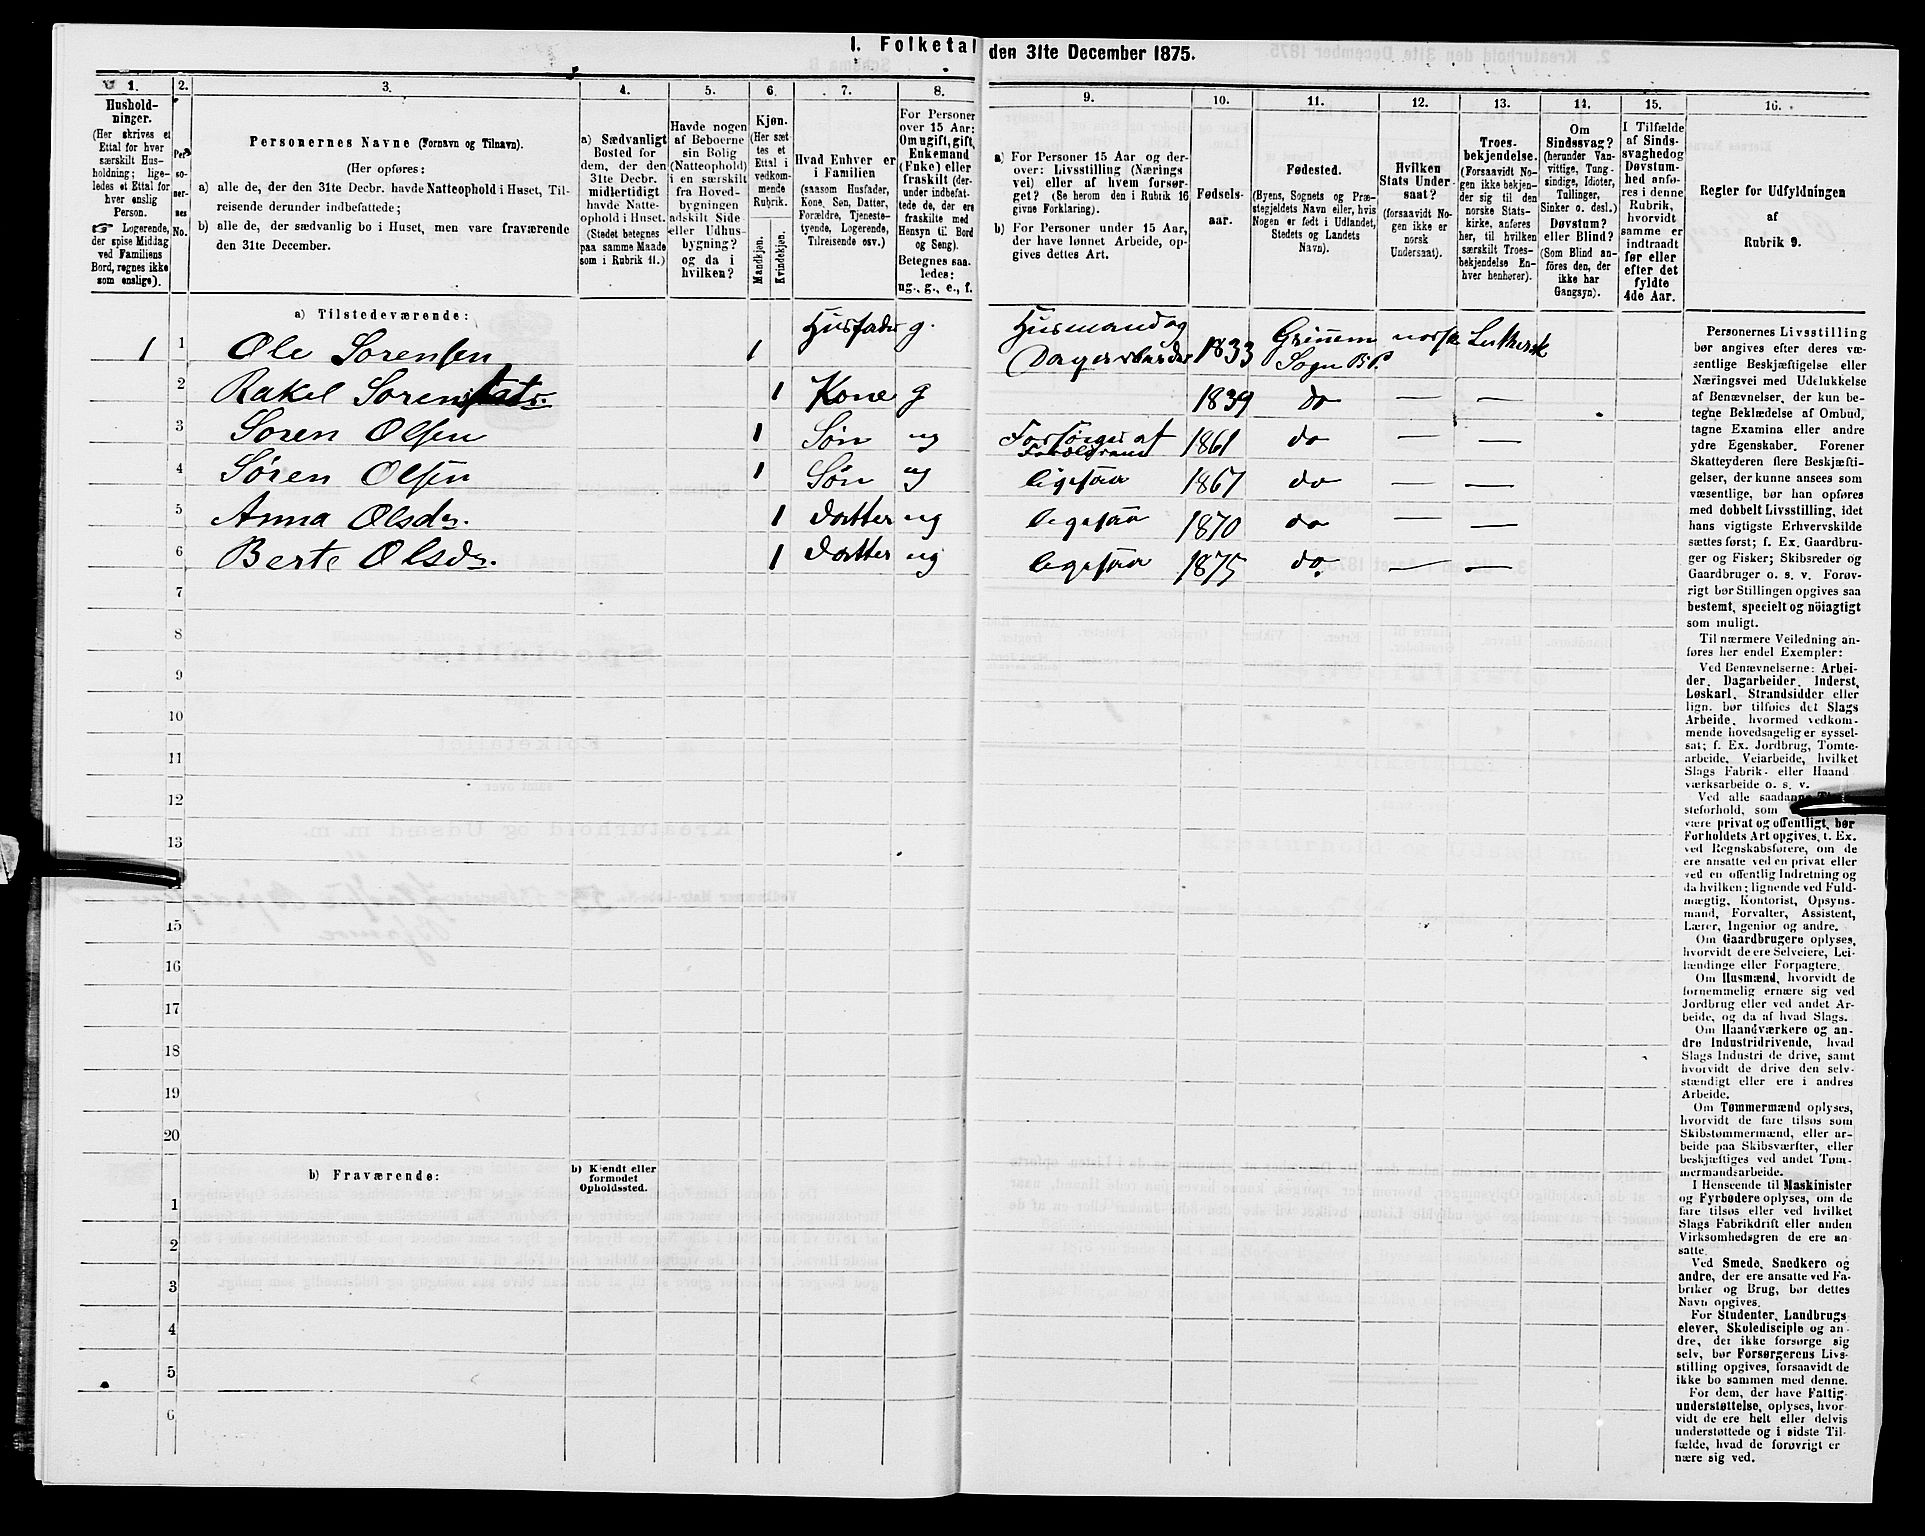 1. Folketal den 31te December 1875.
1. 2. 3. 4. 5. 6. 7. 8. 9. 10. 11. 12. 13. 14. 15. 16.
Hushold-
ninger.
(Her skrives et
Ettal for hver
særskilt Hus-
holdning; lige-
ledes et Ettal for
hver enslig
Person.
☞ Logerende,
der spise Middag
ved Familiens
Bord, regnes ikke
som enslige).
Per-
so-
ner-
nes
No.
Personernes Navne (Fornavn og Tilnavn).
(Her opføres:
a) alle de, der den 31te Decbr. havde Natteophold i Huset, Til-
reisende derunder indbefattede;
b) alle de, der sædvanlig bo i Huset, men vare fraværende
den 31te December.
a) Sædvanligt
Bosted for
dem, der den
31te Decbr.
midlertidigt
havde Natte-
ophold i Huset.
(Stedet betegnes
paa samme Maade
som i Rubrik 11.)
Havde nogen
af Beboerne
sin Bolig
(Natteophold)
i en særskilt
fra Hoved-
bygningen
adskilt Side-
eller Udhus-
bygning?
og da i
hvilken?
Kjøn.
(Her sæt-
tes et
Ettal i
vedkom-
mende
Rubrik.
Mandkjøn.
Kvindekjøn.
Hvad Enhver er
i Familien
(saasom Husfader,
Kone, Søn, Datter,
Forældre, Tjeneste-
tyende, Logerende,
Tilreisende osv.)
For Personer
over 15 Aar:
Om ugift, gift,
Enkemand
(Enke) eller
fraskilt (der-
under indbefat-
tede de, der ere
fraskilte med
Hensyn til Bord
og Seng).
Betegnes saa-
ledes:
ug., g., e., f.
a) For Personer 15 Aar og der-
over: Livsstilling (Nærings-
vei) eller af hvem forsør-
get? (Se herom den i Rubrik 16
givne Forklaring).
b) For Personer under 15 Aar,
der have lønnet Arbeide, op-
gives dettes Art.
Fødsels-
aar.
Fødested.
(Byens, Sognets og Præ-
stegjeldets Navn eller, hvis
Nogen er født i Udlandet,
Stedets og Landets
Navn).
Hvilken
Stats Under-
saat?
(forsaavidt No-
gen ikke er
norsk
Undersaat).
Troes-
bekjendelse.
(Forsaavidt No-
gen ikke bekjen-
der sig til den
norske Stats-
kirke, anføres
her, til hvilken
særskilt Troes-
bekjendelse En-
hver henhører).
Om
Sindssvag?
(herunder Van-
vittige, Tung-
sindige, Idioter,
Tullinger,
Sinker o. desl.)
Døvstum?
eller Blind?
(Som Blind an-
føres den, der
ikke har
Gangsyn).
I Tilfælde
af Sinds-
svaghed og
Døvstum-
hed anfø-
res i denne
Rubrik,
hvorvidt
samme er
indtraadt
før eller
efter det
fyldte
4de Aar.
Regler for Udfyldningen
af
Rubrik 9.
a) Tilstedeværende:
1 1 Ole Sorensen 1 Husfader g. Husmand og Dagarbeider 1833 Grimem Sogn B.P. norsk Luthersk
2 Rakel Sorens 1 Kone g 1839 do — —
3 Soren Olsen 1 Søn ug Forsörges af Forældrene 1861 do — —
4 Søren Olsen 1 Søn ug ligesaa 1867 do — —
5 Anna Olsdr. 1 datter ug ligesaa 1870 do — —
6 Berte Olsdr. 1 datter ug ligesaa 1875 do. — —
7
8
9
10
11
12
13
15
16
17
18
19
20
b) Fraværende:
b) Kjendt eller
formodet
Opholdssted.
1
2
3
4
5
6
Personernes Livsstilling
bør angives efter deres væ-
sentlige Beskjæftigelse eller
Næringsvei med Udelukkelse
af Benævnelser, der kun be-
tegne Beklædelse af Ombud,
tagne Examina eller andre
ydre Egenskaber. Forener
Skatteyderen flere Beskjæfti-
gelser, der kunne ansees som
væsentlige, bør han opføres
med dobbelt Livsstilling, idet
hans vigtigste Erhvervskilde
sættes først; f. Ex. Gaardbru-
ger og Fisker; Skibsreder og
Gaardbruger o. s. v. Forøv-
rigt bør Stillingen opgives saa
bestemt, specielt og nöiagtigt
som muligt.
Til nærmere Veiledning an-
føres her endel Exempler:
Ved Benævnelserne: Arbei-
der, Dagarbeider, Inderst,
Løskarl, Strandsidder eller
lign. bør tilføies det Slags
Arbeide, hvormed vedkom-
mende hovedsagelig er syssel-
sat; f. Ex. Jordbrug, Tomte-
arbeide, Veiarbeide, hvilket
Slags Fabrik- eller Haand
værksarbeide o. s. v.
Ved alle saadanne
steforhold, som
være privat og offentligt, bør
Forholdets Art opgives, t. Ex.
ved Regnskabsførere, om de
ere ansatte ved en privat eller
ved en offentlig Indretning og
da hvilken; lignende ved Fuld-
mægtig, Kontorist, Opsyns-
mand, Forvalter, Assistent,
Lærer, Ingeniør og andre.
Om Gaardbrugere oplyses,
hvorvidt de ere Selveiere, Lei-
lændinge eller Forpagtere.
Om Husmænd, hvorvidt de
fornemmelig ernære sig ved
Jordbrug eller ved andet Ar-
beide, og da af hvad Slags.
Om Haandværkere og an-
dre Industridrivende, hvad
Slags Industri de drive, samt
hvorvidt de drive den selv-
stændigt eller ere i andres
Arbeide.
Om Tømmermænd oplyses,
hvorvidt de fare tilsøs som
Skibstømmermænd, eller ar-
beide paa Skibsværfter, eller
beskjæftiges ved andet Tøm-
mermandsarbeide.
I Henseende til Maskinister
og Fyrbødere oplyses, om de
fare tilsøs eller ved hvilket
Slags Fabrikdrift eller anden
Virksomhedsgren de ere an-
satte.
Ved Smede, Snedkere og
andre, der ere ansatte ved Fa-
briker og Brug, bør dettes
Navn opgives.
For Studenter, Landbrugs
elever, Skoledisciple og an-
dre, der ikke forsørge sig
selv, bør Forsørgerens Livs-
stilling opgives, forsaavidt de
ikke bo sammen med denne.
For dem, der have Fattig-
understøttelse, oplyses, hvor-
vidt de ere helt eller delvis
understøttede og i sidste Til-
fælde, hvad de forøvrigt er
nære sig ved.